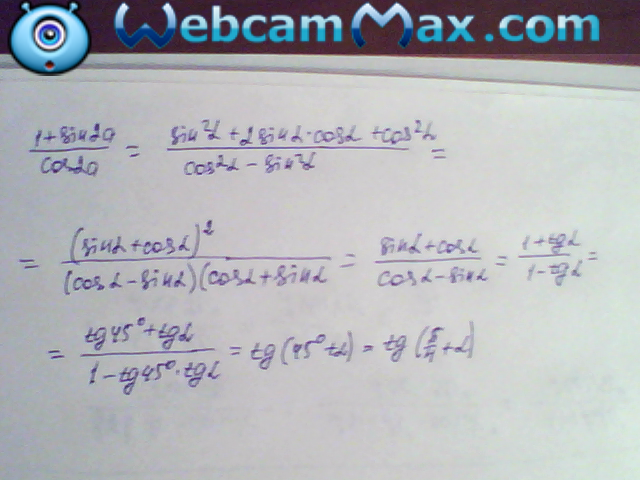 WebcamMax.com
(1+sin2a)/(cos2a) = (sin²α + 2sinα·cosα + cos²α)/(cos²α − sin²α) =
= (sinα + cosα)²/((cosα − sinα)(cosα + sinα) = (sinα + cosα)/(cosα − sinα) = (1+tgα)/(1−tgα) =
= (tg45° + tgα)/(1 − tg45°·tgα) = tg(45° + α) = tg(π/4 + α)